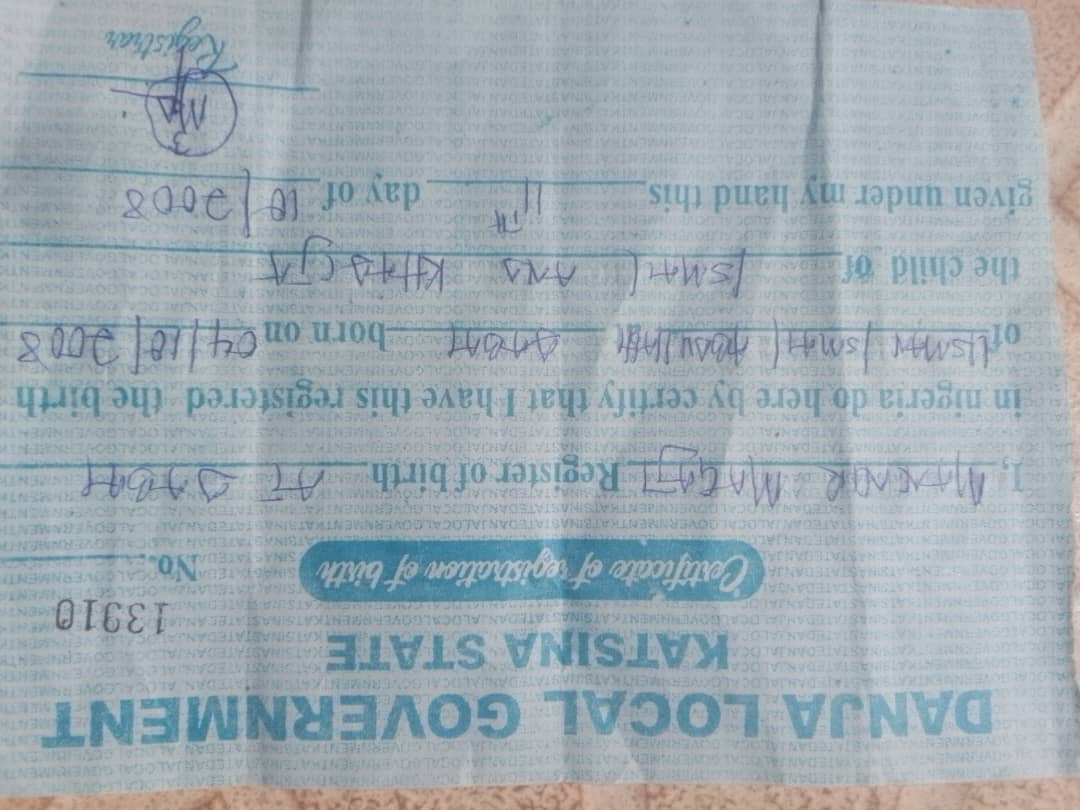 DANJA LOCAL GOVERNMENT
KATSINA STATE
13910
Certificate of registration of birth No.
I, Register of birth AT DABAI
in nigeria do here by certify that I have this registered the birth
of USMAN ISMAIL DABAI born on 04/10/2008
the child of ISMAIL AND
given under my hand this 11TH day of 10/2008
Registrar